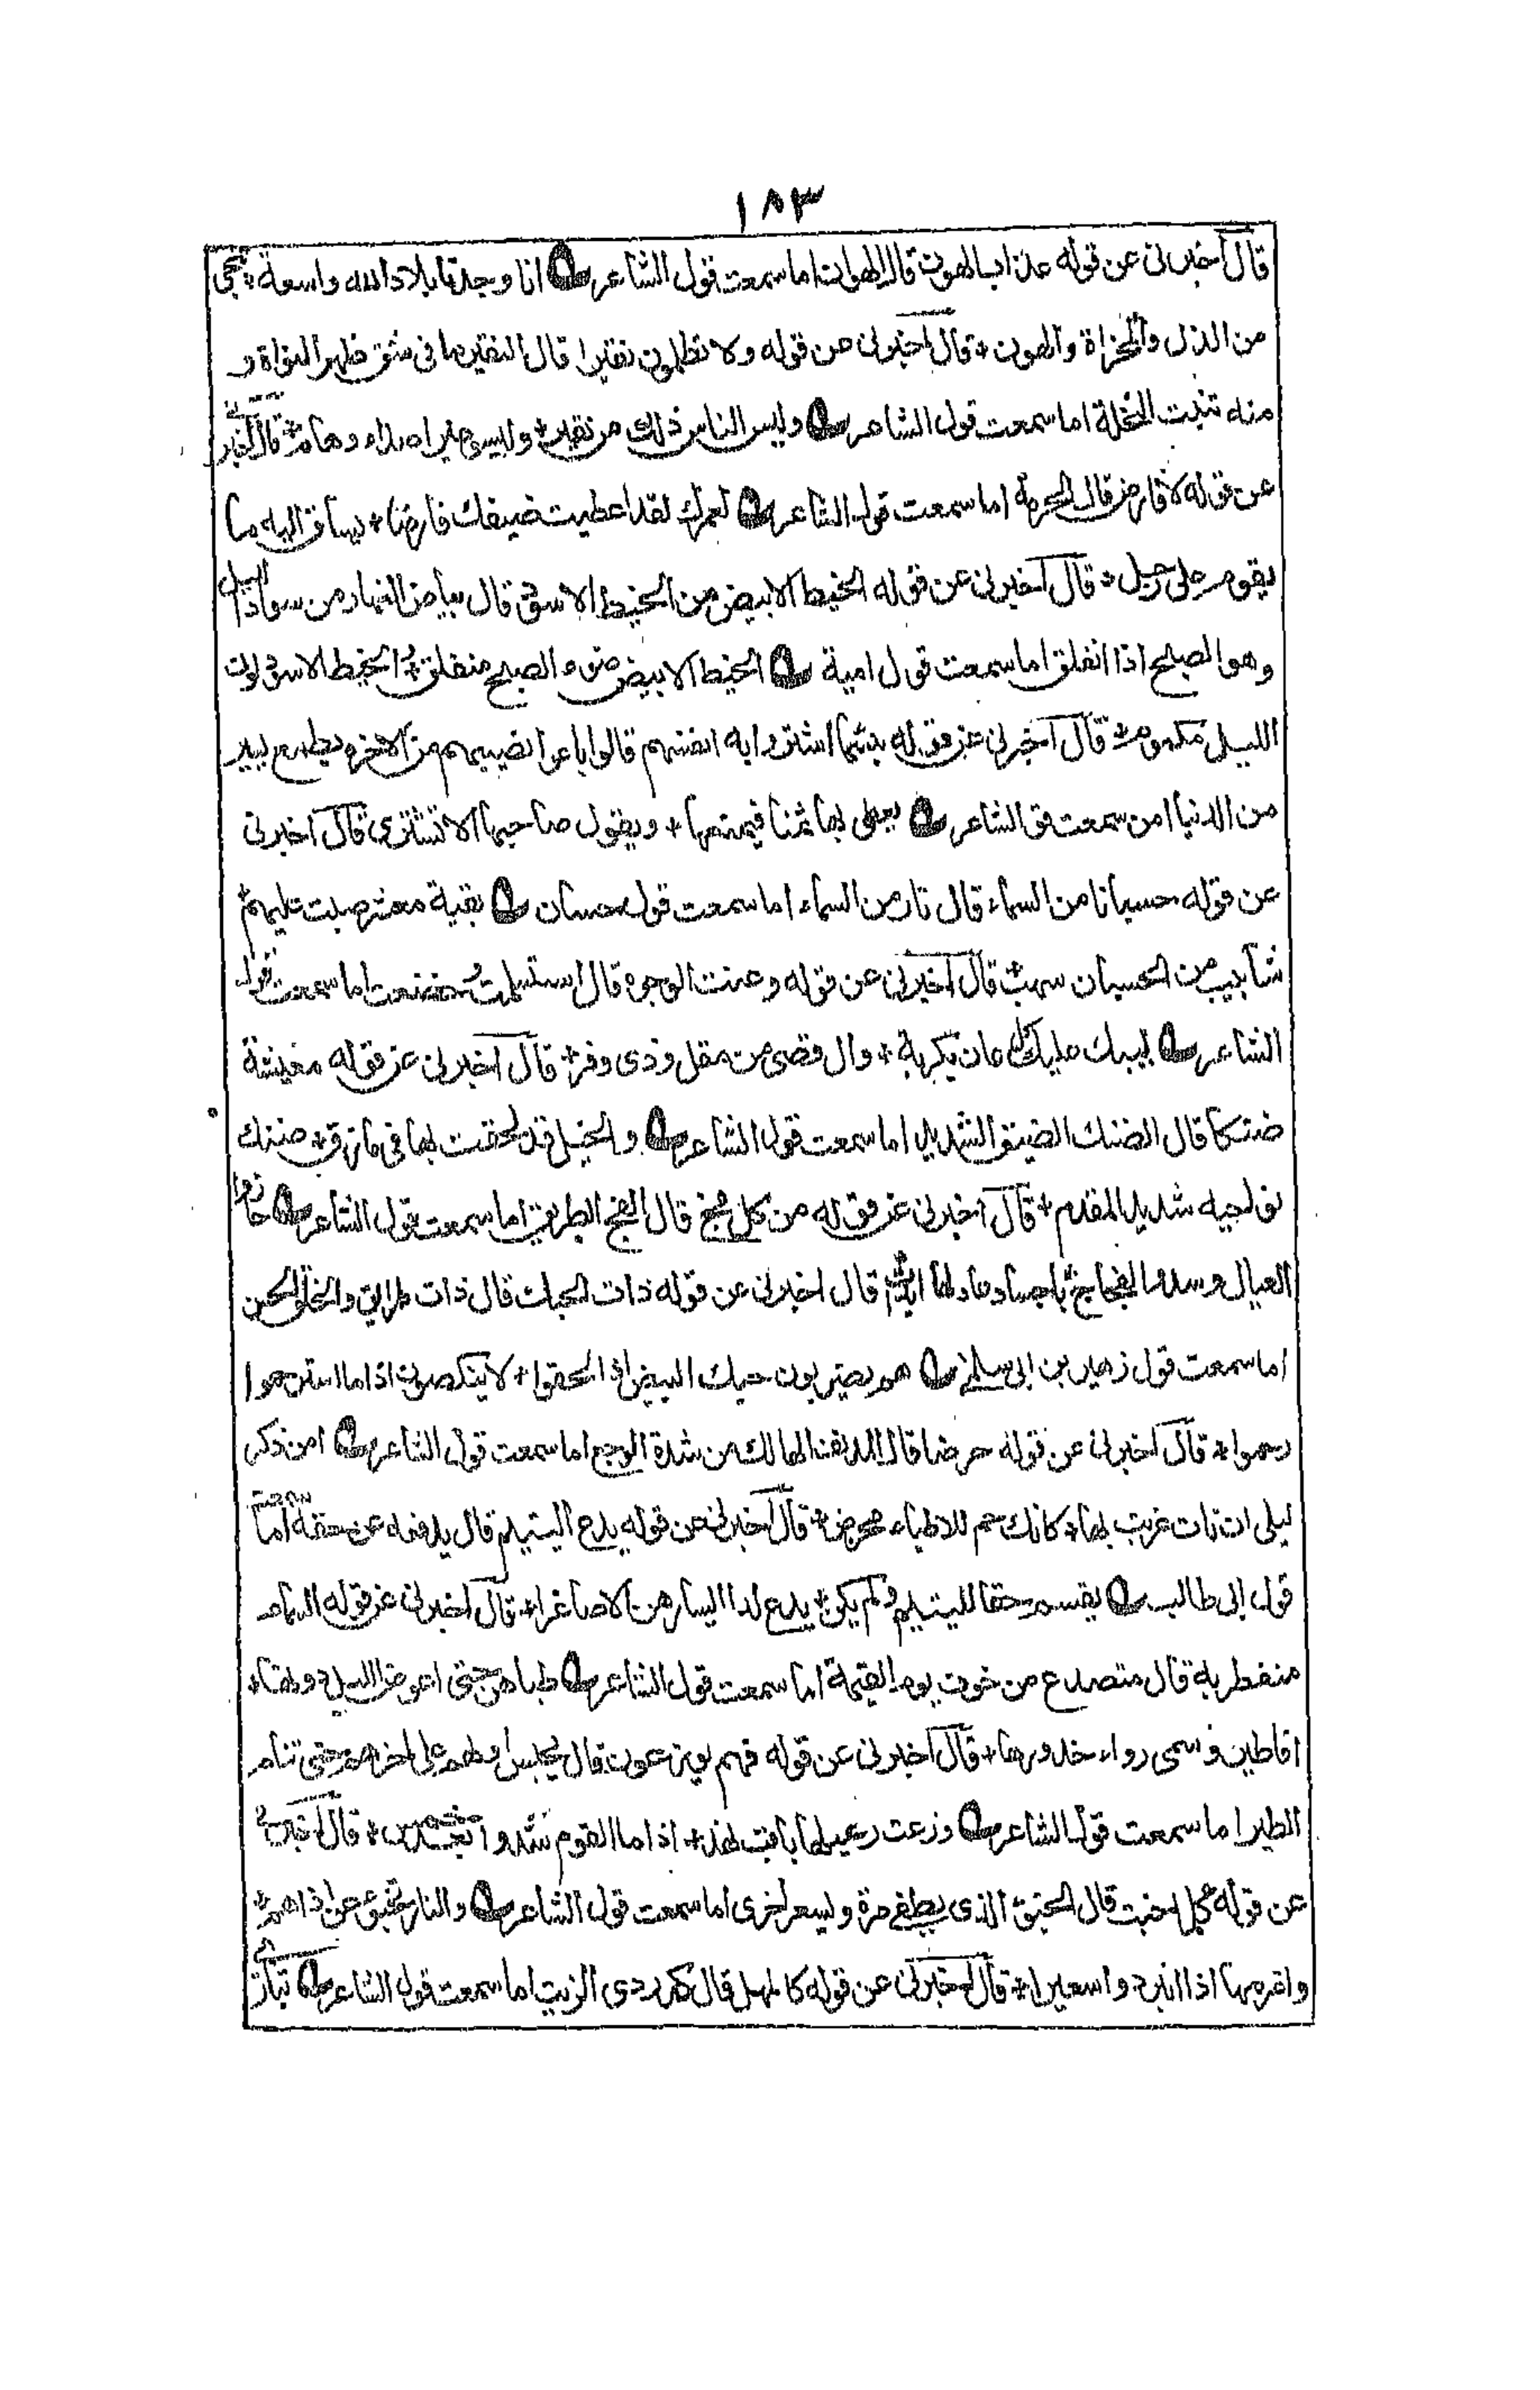 ١٨٣
قال اخبرنى عن قوله عذاب الهون قال الهوان اما سمعت قول الشاعر انا وجدنا بلاد الله واسعة * تنجى
من الذل والمخزاة والهون * قال اخبرنى عن قوله ولا تظلمون نقيرا قال النقير ما فى شق ظهر النواة و
منه تنبت النخلة اما سمعت قول الشاعر وليس الناس ذلك من نقير * وليسوا غير اصداء وهام * قال اخبرنى
عن قوله لا فارض قال الهرمة اما سمعت قول الشاعر لعمرك لقد اعطيت ضيفك فارضا * يساق اليه ما
يقوم على رجل * قال اخبرنى عن قوله الخيط الابيض من الخيط الاسود قال بياض النهار من سواد الليل
وهو الصبح اذا انفلق اما سمعت قول امية الخيط الابيض ضوء الصبح منفلق * والخيط الاسود لون
الليل مكموم * قال اخبرنى عن قوله بئسما اشتروا به انفسهم قال باعوا نصيبهم من الاخرة بطمع يسير
من الدنيا اما سمعت قول الشاعر يعطى بها ثمنا فيمنعها * ويقول صاحبها الا تشترى قال اخبرنى
عن قوله حسبانا من السماء قال نار من السماء اما سمعت قول حسان بقية معشر صبت عليهم *
شآبيب من الحسبان شهب * قال اخبرنى عن قوله وعنت الوجوه قال استسلمت وخضعت اما سمعت قول
الشاعر ليبك عليك كل عان بكربة * وال قصى من مقل وذى وفر * قال اخبرنى عن قوله معيشة
ضنكا قال الضنك الضيق الشديد اما سمعت قول الشاعر والخيل قد لحقت بها فى مازق * ضنك
نواحيه شديد المقدم * قال اخبرنى عن قوله من كل فج قال الفج الطريق اما سمعت قول الشاعر حازوا
العيال وسدوا الفجاج * باجساد عاد لها ايدان قال اخبرنى عن قوله ذات الحبك قال ذات طرائق والخلق الحسن
اما سمعت قول زهير بن ابى سلمى هم يضربون حبيك البيض اذ لحقوا * لا ينكصون اذا ما استلحموا
وحموا * قال اخبرنى عن قوله حرضا قال الدنف الهالك من شدة الوجع اما سمعت قول الشاعر امن ذكر
ليلى ان نات غربة بها * كانك حم للاطباء محرض * قال اخبرنى عن قوله يدع اليتيم قال يدفعه عن حقه اما سمعت
قول ابى طالب يقسم حقا لليتيم ولم يكن * يدع لدا ايسارهن الاصاغرا * قال اخبرنى عن قوله السماء
منفطر به قال متصدع من خوف يوم القيمة اما سمعت قول الشاعر طباهن حتى اعرض الليل دونها *
افاطير وسمى رواء جذورها * قال اخبرنى عن قوله فهم يوزعون قال يحبس اولهم على اخرهم حتى تنام
الطير اما سمعت قول الشاعر وزعت رعيلها باقب نهد * اذا ما القوم شدوا بعد خمس * قال اخبرنى
عن قوله كلما خبت قال الخبو الذى يطفى مرة ويسعر اخرى اما سمعت قول الشاعر والنار تخبو عن اذاهم *
واضرمها اذا ابتردوا سعيرا * قال اخبرنى عن قوله كالمهل قال كدردى الزيت اما سمعت قول الشاعر تبارى